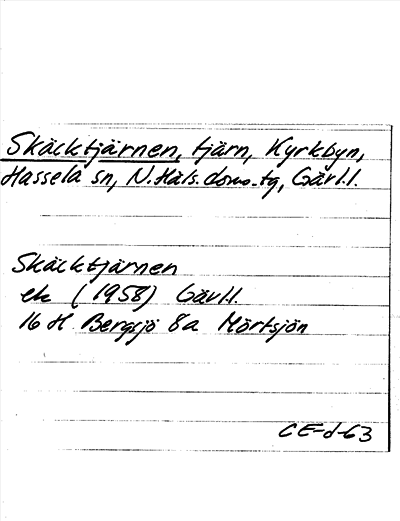 Skäcktjärnen, tjärn, Kyrkbyn,
Hassela sn, N. Häls. doms. tg, Gävl.l.
Skäcktjärnen
ek (1958) Gävl.l.
16 H Bergsjö 8a Mörtsjön
CE-d-63